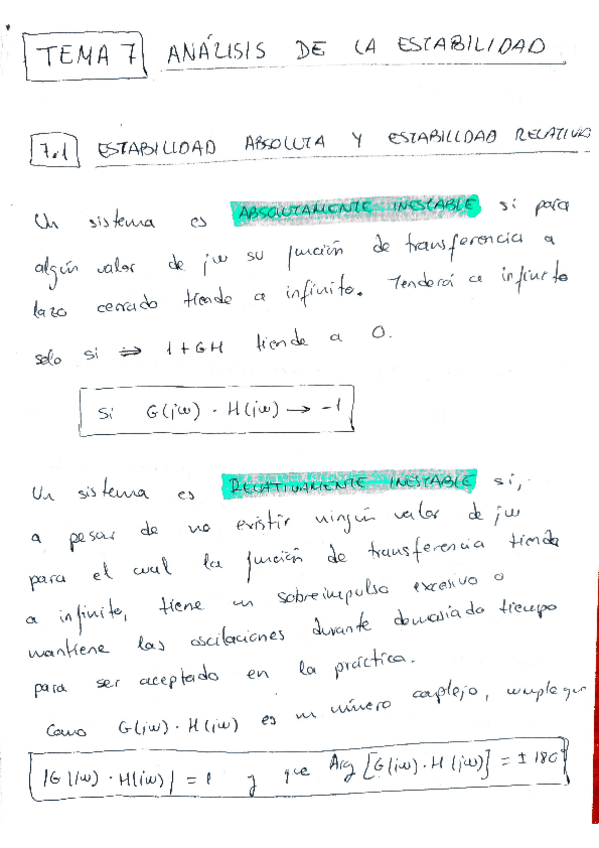 TEMA 7 ANÁLISIS DE LA ESTABILIDAD
7.1 ESTABILIDAD ABSOLUTA Y ESTABILIDAD RELATIVA
Un sistema es ABSOLUTAMENTE INESTABLE si para
algún valor de jω su función de transferencia a
lazo cerrado tiende a infinito. Tenderá a infinito
solo si ⇒ 1+GH tiende a 0.
Si G(jω) · H(jω) → -1
Un sistema es RELATIVAMENTE INESTABLE si,
a pesar de no existir ningún valor de jω
para el cual la función de transferencia tienda
a infinito, tiene un sobreimpulso excesivo o
mantiene las oscilaciones durante demasiado tiempo
para ser aceptado en la práctica.
Como G(jω) · H(jω) es un número complejo, cumple que
|G(jω) · H(jω)| = 1 y que Arg [G(jω) · H(jω)] = ± 180